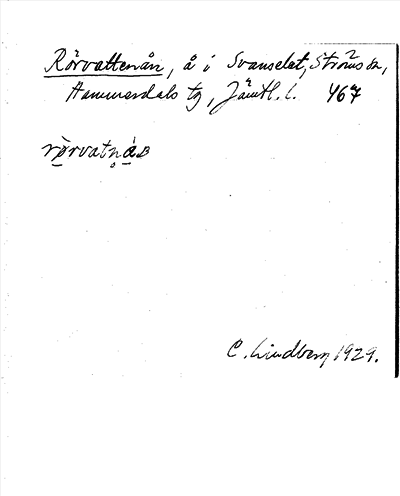 Rörvattenån, å i Svanselet, Ströms sn,
Hammerdals tg, Jämtl. l. 467
rörvatn̥
C. Lindberg 1929.